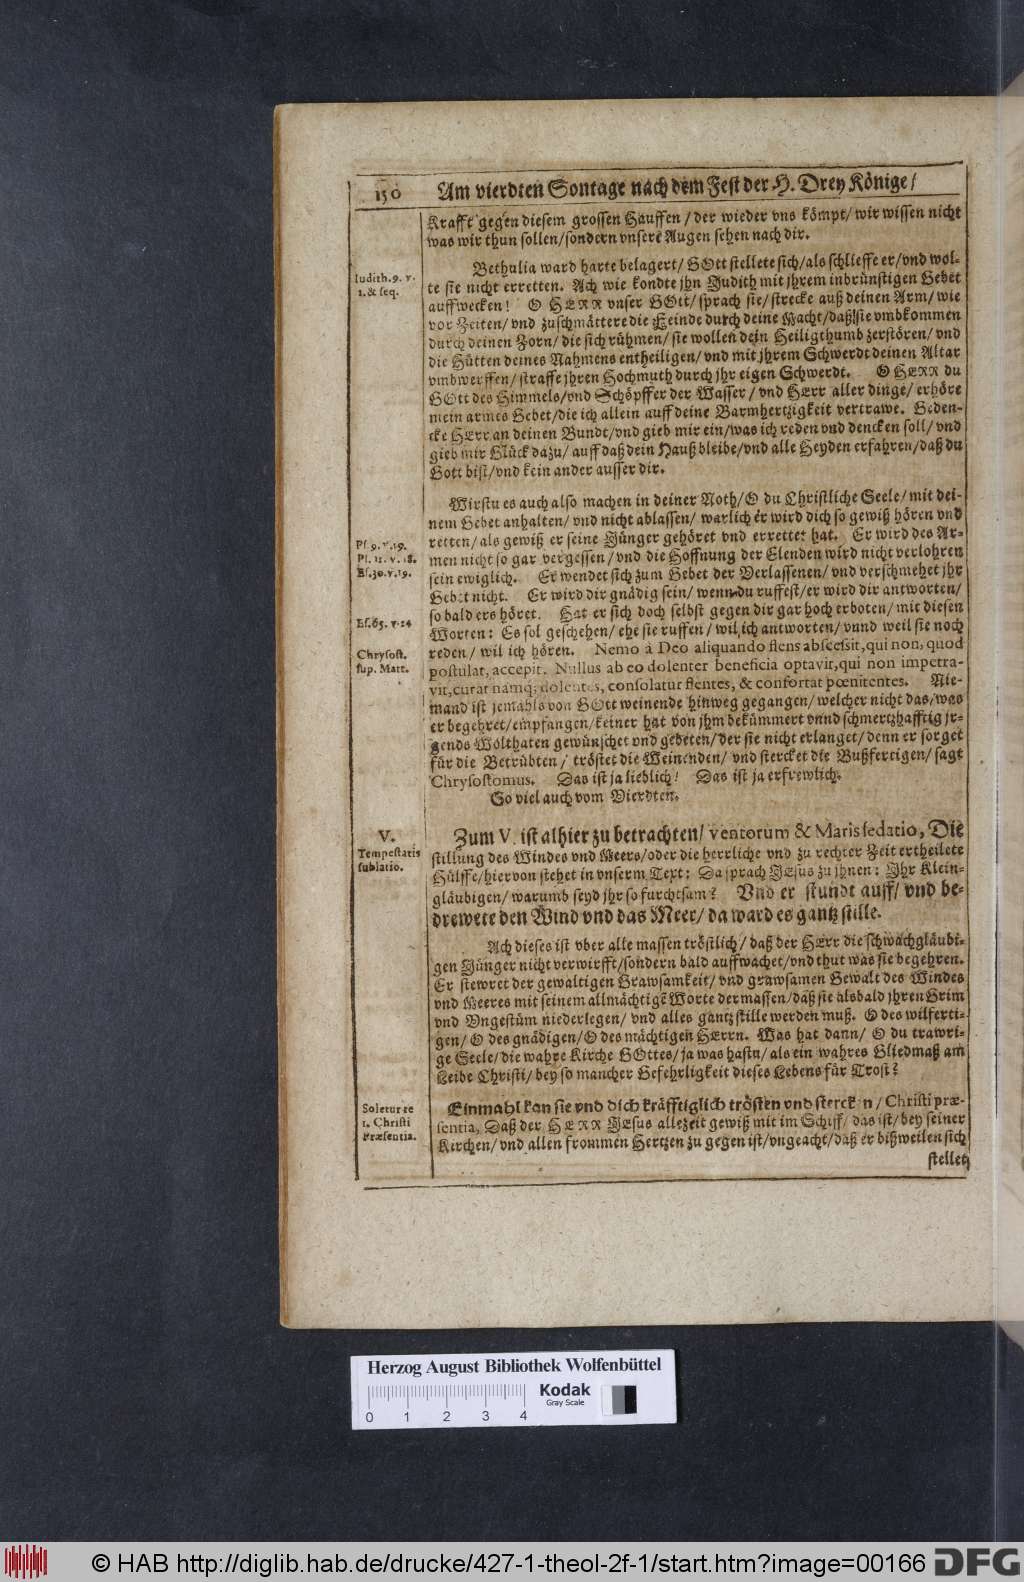 150 Am vierdten Sontage nach dem Fest der H. Drey Könige/
Krafft gegen diesem grossen Hauffen/ der wieder vns kömpt/ wir wissen nicht
was wir thun sollen/ sondern vnsere Augen sehen nach dir.
Iudith. 9. v.
1. & seq.
Bethulia ward harte belagert/ GOtt stellete sich/ als schlieffe er/ vnd wol-
te sie nicht erretten. Ach wie kondte jhn Judith mit jhrem inbrünstigen Gebet
auffwecken! O HERR vnser GOtt/ sprach sie/ strecke auß deinen Arm/ wie
vor Zeiten/ vnd zuschmättere die Feinde durch deine Macht/ daß sie vmbkommen
durch deinen Zorn/ die sich rühmen/ sie wollen dein Heiligthumb zerstören/ vnd
die Hütten deines Nahmens entheiligen/ vnd mit jhrem Schwerdt deinen Altar
vmbwerffen/ straffe jhren Hochmuth durch jhr eigen Schwerdt. O HERR du
GOtt des Himmels/ vnd Schöpffer der Wasser/ vnd HErr aller dinge/ erhöre
mein armes Gebet/ die ich allein auff deine Barmhertzigkeit vertrawe. Geden-
cke HErr an deinen Bundt/ vnd gieb mir ein/ was ich reden vnd dencken soll/ vnd
gieb mir Glück dazu/ auff daß dein Hauß bleibe/ vnd alle Heyden erfahren/ daß du
Gott bist/ vnd kein ander ausser dir.
Wirstu es auch also machen in deiner Noth/ O du Christliche Seele/ mit dei-
nem Gebet anhalten/ vnd nicht ablassen/ warlich er wird dich so gewiß hören vnd
Ps. 9. v. 19.
Ps. 11. v. 18.
Es. 30. v. 19.
retten/ als gewiß er seine Jünger gehöret vnd errettet hat. Er wird des Ar-
men nicht so gar vergessen/ vnd die Hoffnung der Elenden wird nicht verlohren
sein ewiglich. Er wendet sich zum Gebet der Verlassenen/ vnd verschmehet jhr
Gebet nicht. Er wird dir gnädig sein/ wenn du ruffest/ er wird dir antworten/
so bald ers höret. Hat er sich doch selbst gegen dir gar hoch erboten/ mit diesen
Es. 65. v. 24
Worten: Es sol geschehen/ ehe sie ruffen/ wil ich antworten/ vnnd weil sie noch
Chrysost.
sup. Matt.
reden/ wil ich hören. Nemo à Deo aliquando flens abscessit, qui non, quod
postulat, accepit. Nullus ab eo dolenter beneficia optavit, qui non impetra-
vit, curat namq; dolentes, consolatur flentes, & confortat pœnitentes. Nie-
mand ist jemahls von GOtt weinende hinweg gegangen/ welcher nicht das/ was
er begehret/ empfangen/ keiner hat von jhm bekümmert vnnd schmertzhafftig jr-
gends Wolthaten gewünschet vnd gebeten/ der sie nicht erlanget/ denn er sorget
für die Betrübten/ tröstet die Weinenden/ vnd stercket die Bußfertigen/ sagt
Chrysostomus. Das ist ja lieblich! Das ist ja erfrewlich.
So viel auch vom Vierdten.
V.
Tempestatis
sublatio.
Zum V. ist alhier zu betrachten/ ventorum & Maris sedatio, Die
stillung des Windes vnd Meers/ oder die herrliche vnd zu rechter Zeit ertheilete
Hülffe/ hiervon stehet in vnserm Text: Da sprach JEsus zu jhnen: Jhr Klein-
gläubigen/ warumb seyd jhr so furchtsam? Vnd er stundt auff/ vnd be-
drewete den Wind vnd das Meer/ da ward es gantz stille.
Ach dieses ist vber alle massen tröstlich/ daß der HErr die schwachgläubi-
gen Jünger nicht verwirfft/ sondern bald auffwachet/ vnd thut was sie begehren.
Er stewret der gewaltigen Grawsamkeit/ vnd grawsamen Gewalt des Windes
vnd Meeres mit seinem allmächtigē Worte dermassen/ daß sie alsbald jhren Grim
vnd Vngestüm niederlegen/ vnd alles gantz stille werden muß. O des wilferti-
gen/ O des gnädigen/ O des mächtigen HErrn. Was hat dann/ O du trawri-
ge Seele/ die wahre Kirche GOttes/ ja was hastu/ als ein wahres Gliedmaß am
Leibe Christi/ bey so mancher Gefehrligkeit dieses Lebens für Trost?
Soletur te
1. Christi
Præsentia.
Einmahl kan sie vnd dich kräfftiglich trösten vnd stercken/ Christi præ-
sentia, Daß der HERR JEsus allezeit gewiß mit im Schiff/ das ist/ bey seiner
Kirchen/ vnd allen frommen Hertzen zu gegen ist/ vngeacht/ daß er bißweilen sich
stellet
Herzog August Bibliothek Wolfenbüttel
0 1 2 3 4
Kodak
Gray Scale
© HAB http://diglib.hab.de/drucke/427-1-theol-2f-1/start.htm?image=00166
DFG